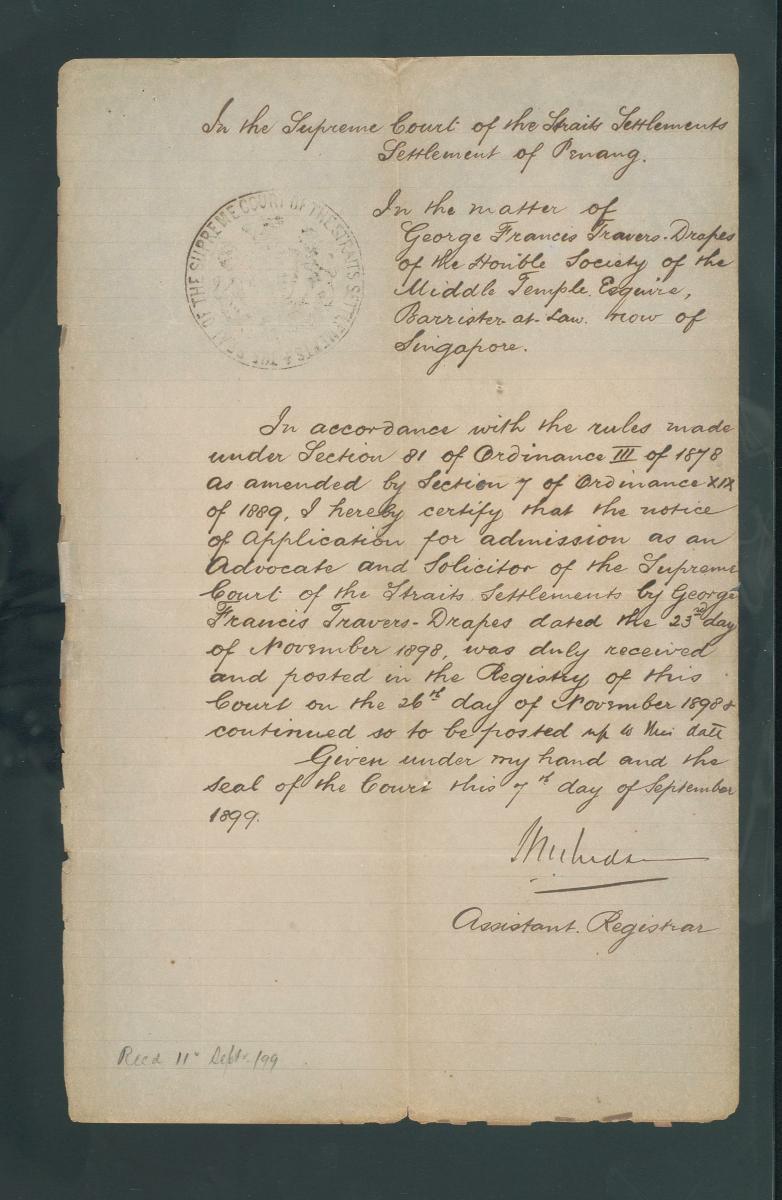 In the Supreme Court of the Straits Settlements
Settlement of Penang.
THE SEAL OF THE SUPREME COURT OF THE STRAITS SETTLEMENTS
In the matter of
George Francis Travers-Drapes
of the Honble Society of the
Middle Temple. Esquire,
Barrister-at-Law. now of
Singapore.
In accordance with the rules made
under Section 81 of Ordinance III of 1878
as amended by Section 7 of Ordinance XIX
of 1889, I hereby certify that the notice
of Application for admission as an
Advocate and Solicitor of the Supreme
Court of the Straits Settlements by George
Francis Travers-Drapes dated the 23rd day
of November 1898, was duly received
and posted in the Registry of this
Court on the 26th day of November 1898 &
continued so to be posted up to this date
Given under my hand and the
seal of the Court this 7th day of September
1899.
Assistant. Registrar
Recd 11th Sept. /99